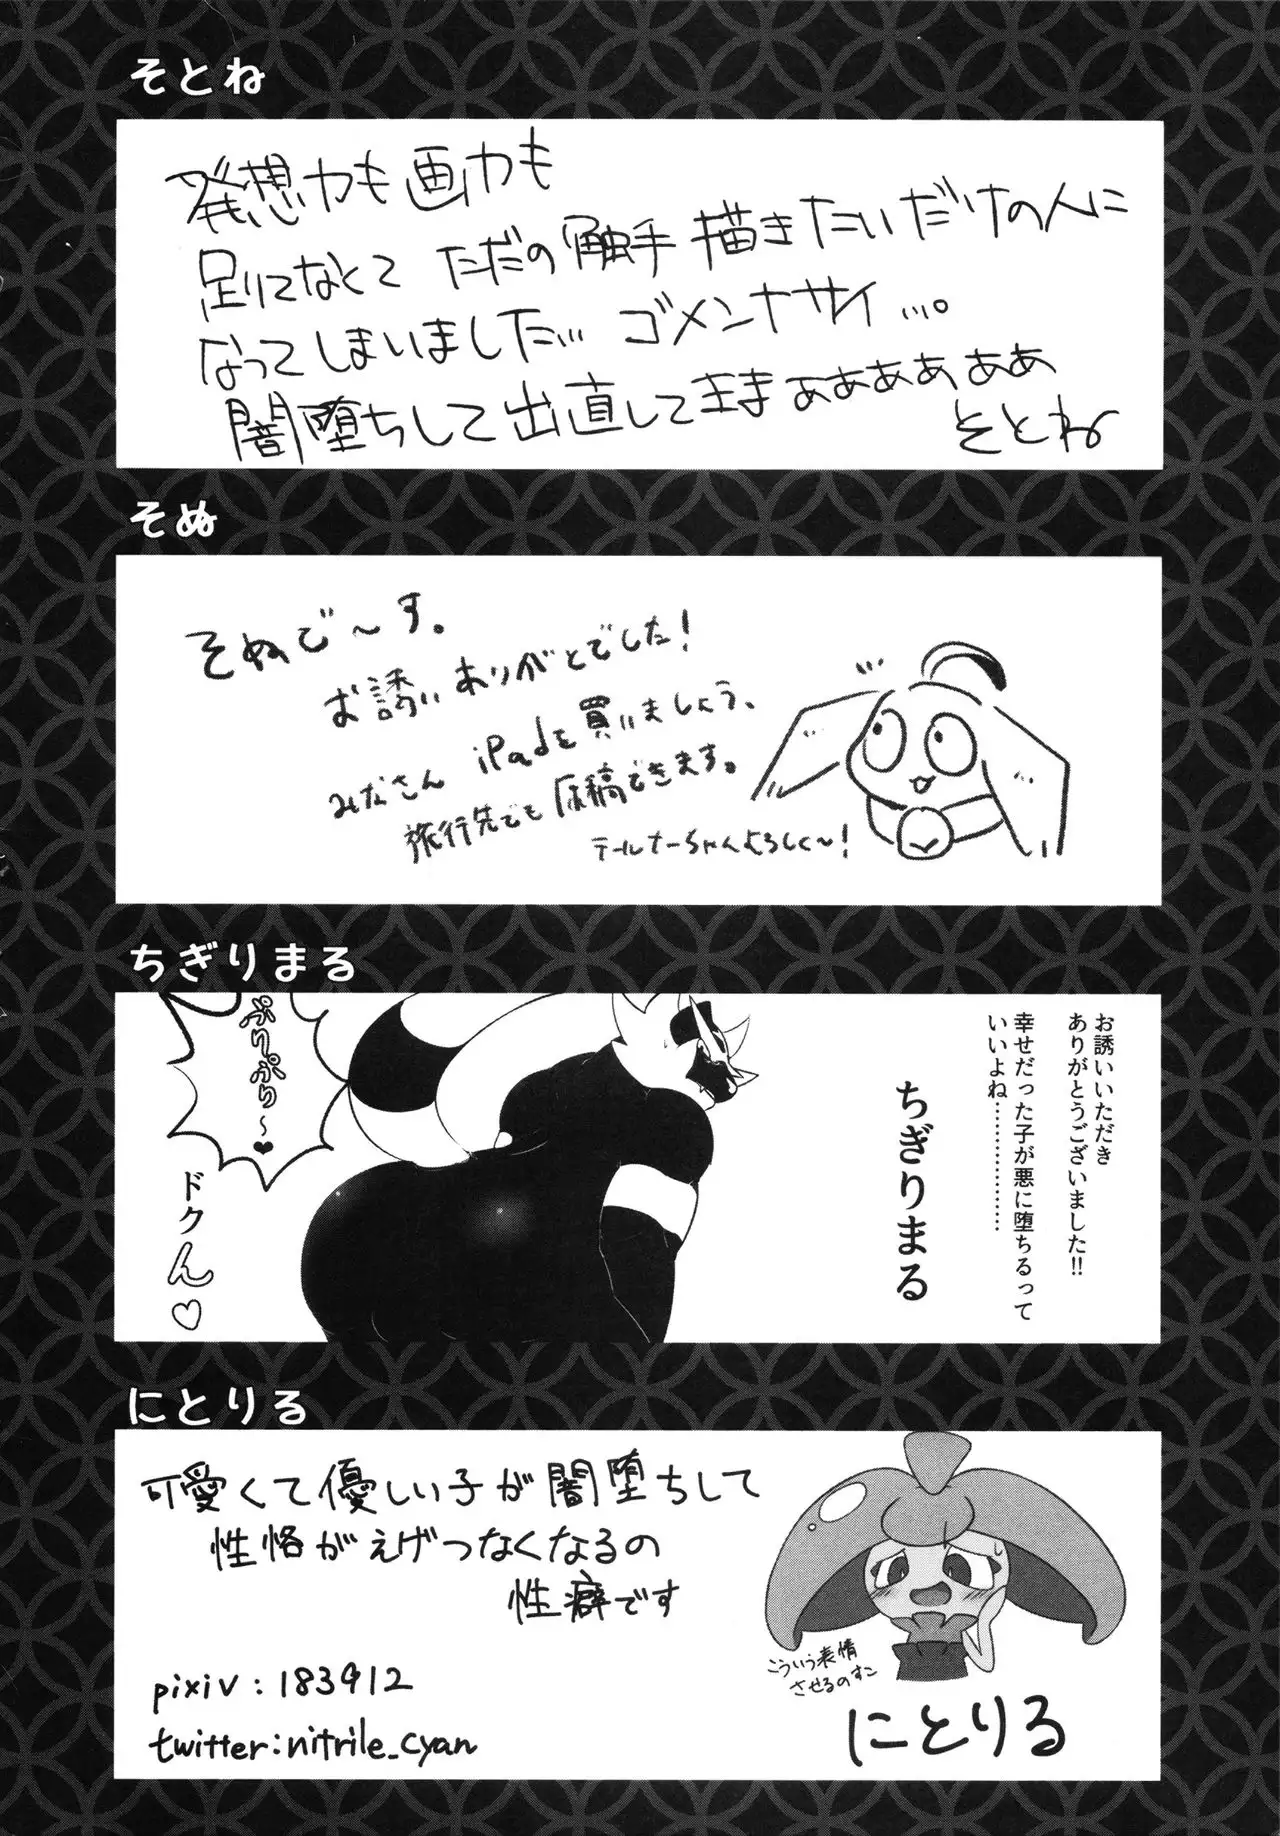 そとね
発想力も画力も
足りてなくて ただの触手描きたいだけの人に
なってしまいました… ゴメンナサイ…。
闇堕ちして出直してきまぁぁぁぁぁぁ
そとね
そぬ
そぬで〜す。
お誘いありがとでした!
みなさん iPadを買いましょう、
旅行先でも原稿できます。
テールナーちゃんよろしく〜!
ちぎりまる
お誘いいただき
ありがとうございました!!
幸せだった子が悪に堕ちるって
いいよね………………
ちぎりまる
ぷりぷり〜♥
ドクん♡
にとりる
可愛くて優しい子が闇堕ちして
性格がえげつなくなるの
性癖です
pixiv:183912
twitter:nitrile_cyan
こういう表情
させるのすこ
にとりる